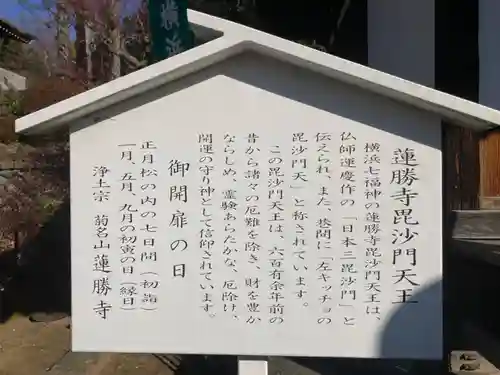 横浜
蓮勝寺毘沙門天王
横浜七福神の蓮勝寺毘沙門天王は、
仏師運慶作の「日本三毘沙門」と
伝えられ、また、巷間に「左キッチョの
毘沙門天」と称されています。
この毘沙門天王は、六百有余年前の
昔から諸々の厄難を除き、財を豊か
ならしめ、霊験あらたかな、厄除け、
開運の守り神として信仰されています。
御開扉の日
正月松の内の七日間（初詣）
一月、五月、九月の初寅の日（縁日）
浄土宗 菊名山蓮勝寺